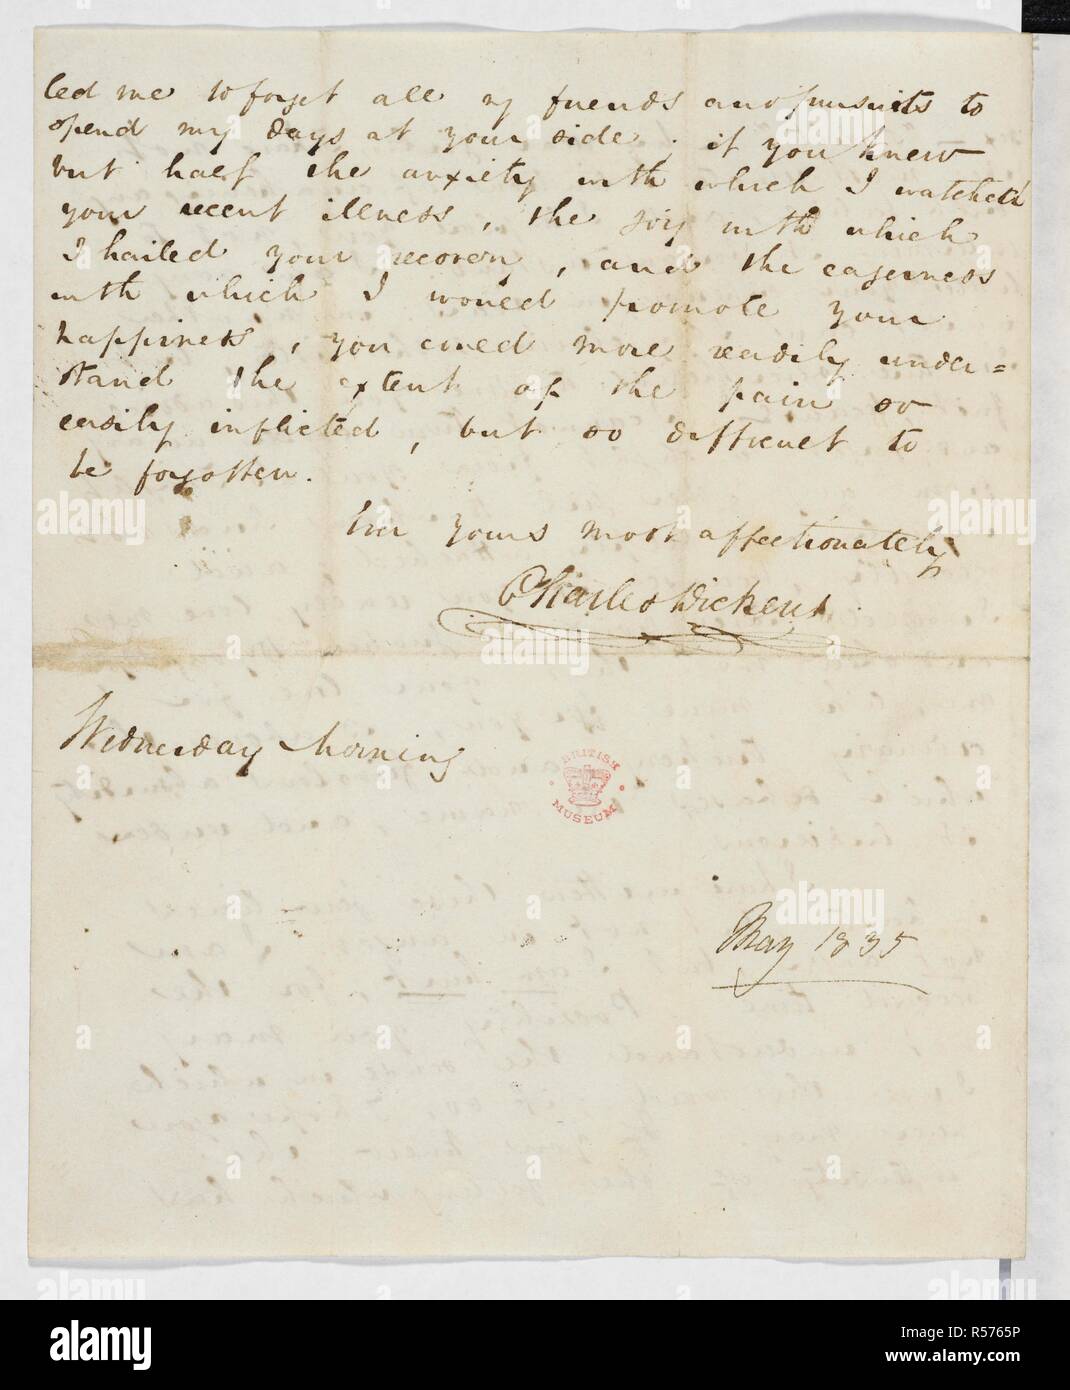 led me to forget all my friends and pursuits to
spend my days at your side; if you knew
but half the anxiety with which I watched
your recent illness, the joy with which
I hailed your recovery, and the eagerness
with which I would promote your
happiness, you could more readily under=
stand the extent of the pain so
easily inflicted, but so difficult to
be forgotten.
Ever yours most affectionately
Charles Dickens
Wednesday Morning
BRITISH
MUSEUM
May 1835
alamy
alamy
alamy
alamy
alamy
alamy
alamy
alamy
Image ID: R5765P
www.alamy.com